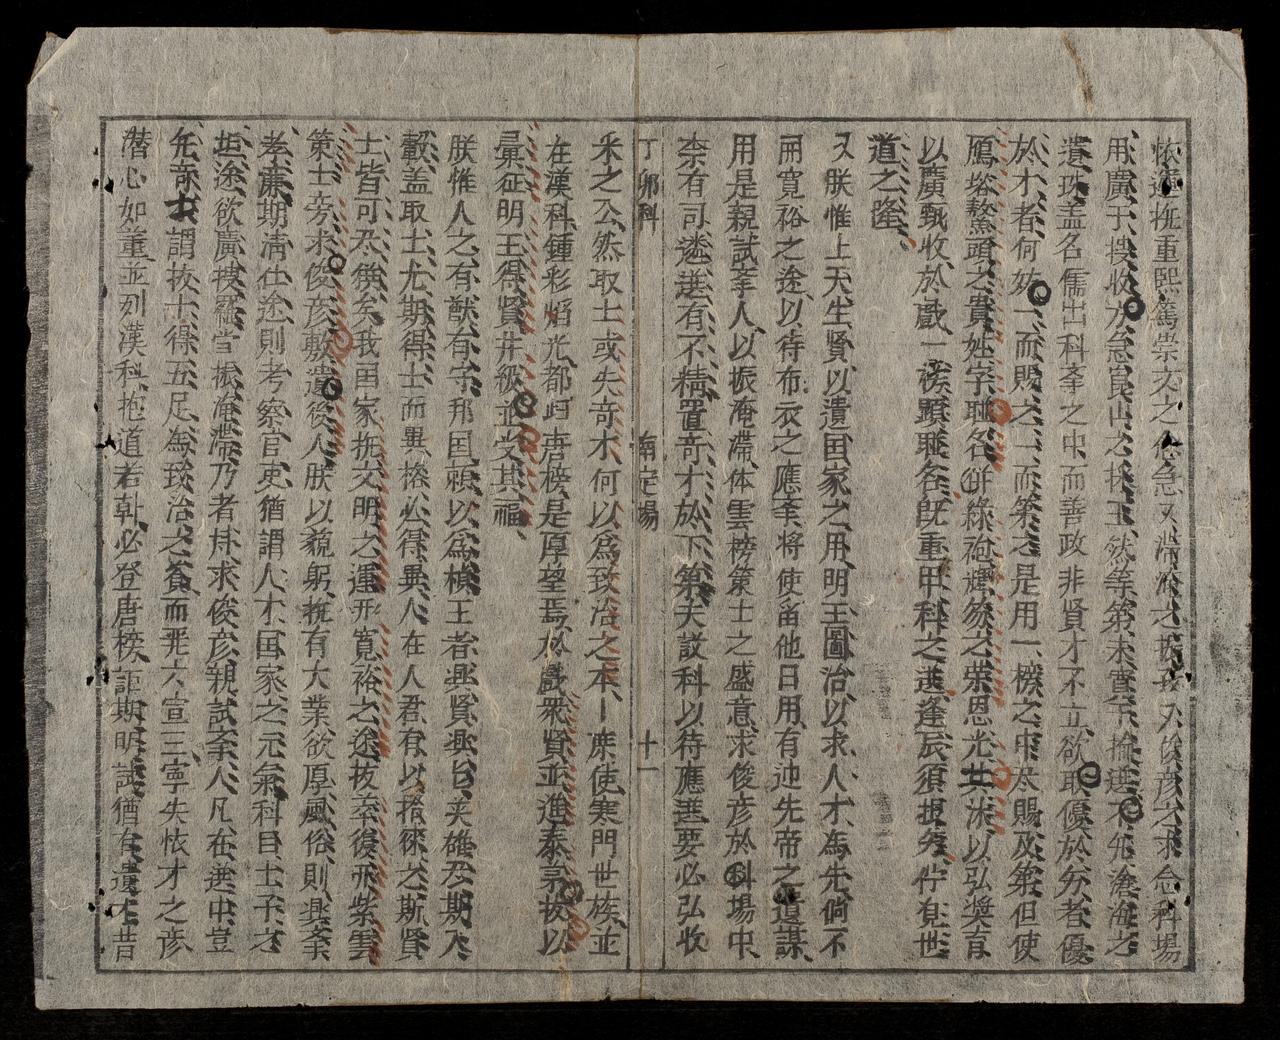 恢遠抚重熙篤崇文之侟急又滯淹之振投又俊彦之求念科場
用廣于搜收方急崑山之採玉然等第未實予掄選不先滄海之
遺珠盖名儒出科挙之中而善政非賢才不立欲取優於分者優
於才者何妨一而賜之二而第之是用一榜之中大賜及第但使
鴈塔鰲頭之貴姓字聯名併綠袍嬋笏之荣恩光共沐以弘奨育
以廣甄收於戯一榜顕聯各旣重甲科之選逢辰須提竞伫皃世
道之隆
又朕惟上天生賢以遺囯家之用明王圖治以求人才為先倘不
丽寛裕之途以待布衣之應挙将使畱他日用有迚先帝之遺謀
用是親試挙人以振淹滯体雲榜策士之盛意求俊彦於科場中
柰有司遴選有不精置奇才於下第夫設科以待應選要必弘收
丁卯科 南定場 十一
釆之公然取士或失奇才何以為致治之本丨庶使寒門世族並
在漢科鍾彩焰光都囘唐榜是厚望焉於戯衆賢並進泰亨拔以
彙征明王得賢井級並受其福
朕惟人之有猷有守邦囯頼以為楨王者興賢興能英雄及期入
轂盖取士尤期得士而異榜必得異人在人君有以招徠之斯賢
士皆可大㒇矣我囯家抚文明之運丽寛裕之途拔挙復丽紫雲
策士旁求俊彦敷遺後人朕以藐躬抚有大業欲厚風俗則興挙
孝㢘期清仕途則考察官吏猶謂人才囯家之元氣科目士子之
坦途欲廣搜羅尝振淹滯乃者丼求俊彦親試挙人凡在選中豈
先奇士謂拔士得五足為致治之資而丽六宣三寧失恢才之彦
潛心如董並列漢科抱道若韩必登唐榜詎期明試猶有遺才昔